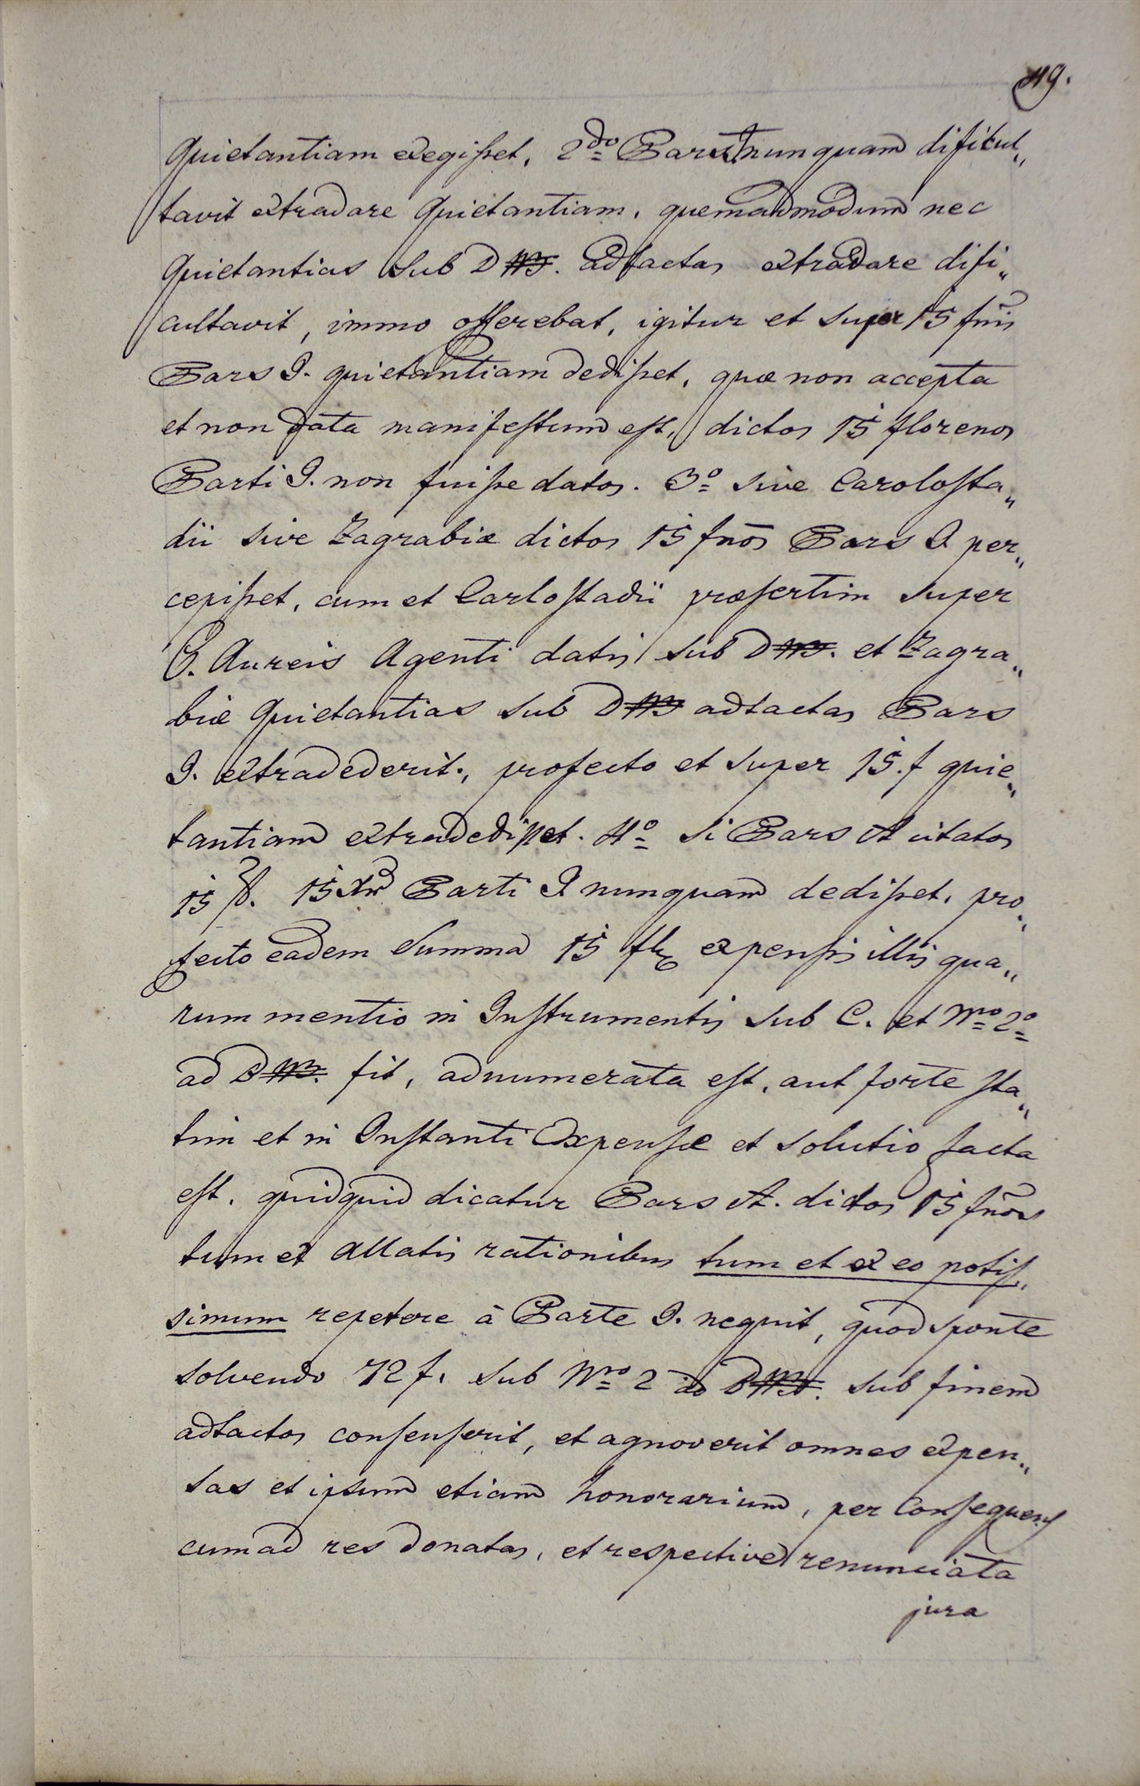 49.
Quietantiam exegisset, 2do Pars nunquam dificul„
tavit extradare Quietantiam, quemadmodum nec
Quietantias sub D adtactas extradare difi„
cultavit, immo offerebat, igitur et super 15 fnis
Pars I. quietantiam dedisset, quæ non accepta
et non data manifestum est, dictos 15 florenos
Parti I. non fuisse datos. 3o sive Carolosta„
dii sive Zagrabiæ dictos 15 fnos Pars I per„
cepisset, cum et Carlostadii præsertim super
8. Aureis Agenti datis sub D. et Zagra„
biæ Quietantias sub D adtactas Pars
I. extradederit, profecto et super 15. f quie„
tantiam extradedisset. 4o si Pars A citatos
15 f. 15 Xr Parti I nunquam dedisset, pro„
fecto eadem Summa 15 expensis illis qua„
rum mentio in Instrumentis sub C. et Nro 2o
ad D. fit, adnumerata est, aut forte sta„
tim et in Instanti Expensæ et solutio facta
est. quidquid dicatur Pars A. dictos 15 fnos
tum ex allatis rationibus tum et ex eo potis„
simum repetere à Parte I. nequit, quod sponte
solvendo 72 f. sub Nro 2 ad D. sub finem
adtactos consenserit, et agnoverit omnes expen„
sas et ipsum etiam honorarium, per Consequens
cum ad res donatas, et respective renunciata
jura